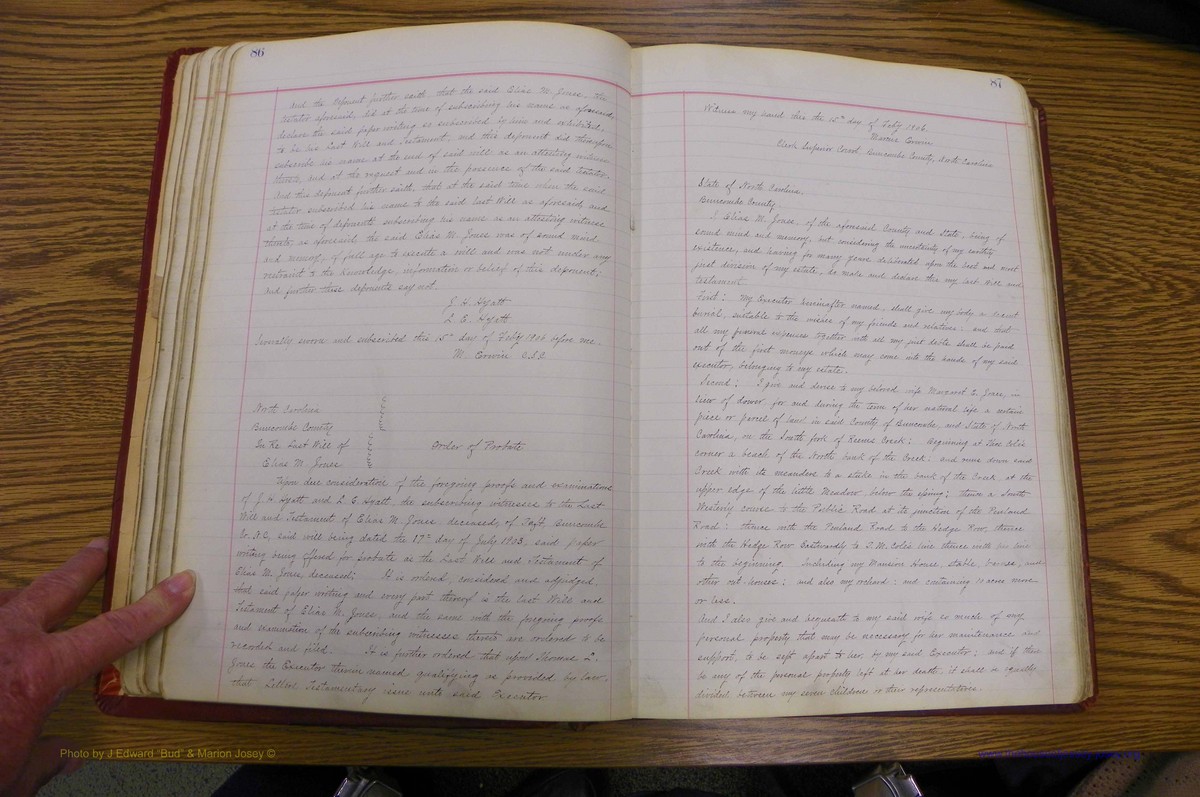 86
And the deponent further saith, that the said Elias M. Jones, the
testator aforesaid, did at the time of subscribing his name as aforesaid,
declare the said paper writing so subscribed by him and exhibited,
to be his Last Will and Testament, and this deponent did thereupon
subscribe his name at the end of said will as an attesting witness
thereto, and at the request and in the presence of the said testator.
And this deponent further saith, that at the said time when the said
testator subscribed his name to the said last Will as aforesaid, and
at the time of deponents subscribing his name as an attesting witness
thereto, as aforesaid, the said Elias M. Jones was of sound mind
and memory, of full age to execute a will and was not under any
restraint to the knowledge, information or belief of this deponent;
and further these deponents say not.
J. H. Hyatt
L. E. Hyatt
Severally sworn and subscribed this 15th day of Feby 1906 before me.
M. Erwin C.S.C.
North Carolina
Buncombe County
In Re Last Will of
Elias M. Jones
Order of Probate
Upon due consideration of the foregoing proofs and examinations
of J. H. Hyatt and L. E. Hyatt, the subscribing witnesses to the Last
Will and Testament of Elias M. Jones, deceased, of Buncombe
N.C, said will being dated the 17th day of July 1903, said paper
writing being offered for probate as the Last Will and Testament of
Elias M. Jones, deceased; It is ordered, considered and adjudged,
that said paper writing and every part thereof is the last Will and
Testament of Elias M. Jones, and the same with the foregoing proofs
and examination of the subscribing witnesses thereto are ordered to be
recorded and filed. It is further ordered that upon Thomas L.
Jones the Executor therein named, qualifying as provided by law,
that Letters Testamentary issue unto said Executor
87
Witness my hand this the 15th day of Feby 1906.
Marcus Erwin
Clerk Superior Court, Buncombe County, North Carolina
State of North Carolina,
Buncombe County.
I Elias M. Jones, of the aforesaid County and State, being of
sound mind and memory, but considering the uncertainty of my earthly
existence, and having for many years deliberated upon the best and most
just division of my estate, do make and declare this my last will and
testament.
First: My Executor hereinafter named, shall give my body a decent
burial, suitable to the wishes of my friends and relatives: and that
all my funeral expenses together with all my just debts shall be paid
out of the first moneys which may come into the hands of my said
executor, belonging to my estate.
Second: I give and devise to my beloved wife Margaret L. Jones, in
lieu of dower, for and during the term of her natural life a certain
piece or parcel of land in said County of Buncombe, and State of North
Carolina, on the South fork of Reems Creek: Beginning at Thos Coles
corner a beech of the North bank of the Creek: and runs down said
Creek with its meanders to a stake in the bank of the Creek, at the
upper edge of the little Meadow below the spring; thence a South
Westerly course to the Public Road at its junction of the Penland
Road: thence with the Penland Road to the Hedge Row, thence
with the Hedge Row Eastwardly to T. M. Coles line thence with his line
to the beginning. Including my Mansion House, stable, barns, and
other out-houses; and also my orchard: and containing 10 acres more
or less.
And I also give and bequeath to my said wife so much of my
personal property that may be necessary for her maintenance and
support, to be sett apart to her, by my said Executor; and if there
be any of the personal property left at her death, it shall be equally
divided between my seven children or their representatives.
Photo by J Edward "Bud" & Marion Josey ©